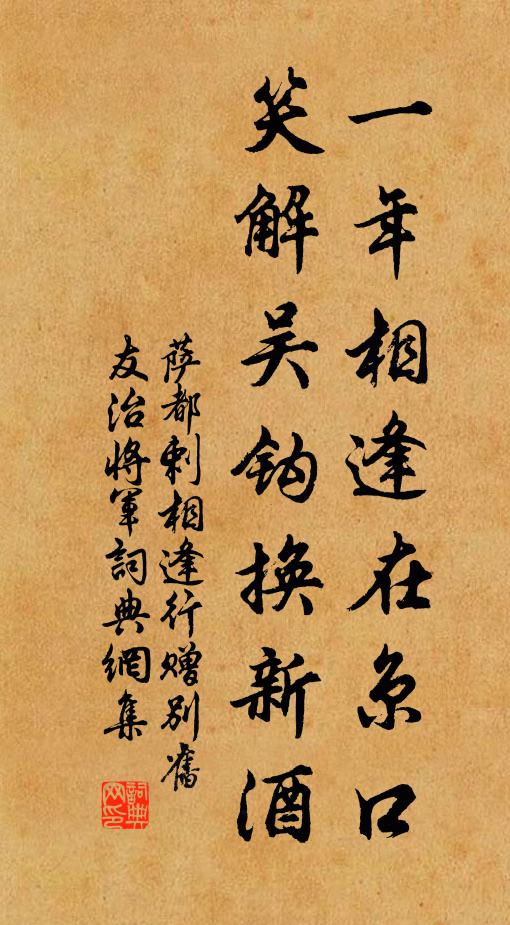 一年相逢在京口
笑解吴钩换新酒
萨都剌相逢行赠别旧
友治将军词典網集
詞典網印